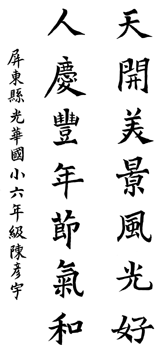 天開美景風光好
人慶豐年節氣和
屏東縣光華國小六年級陳彥宇